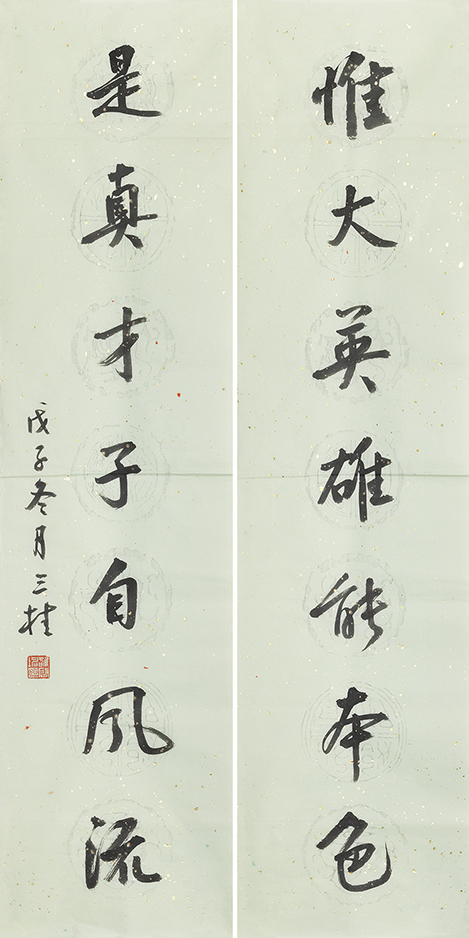 惟大英雄能本色
是真才子自風流
戊子冬月三桂